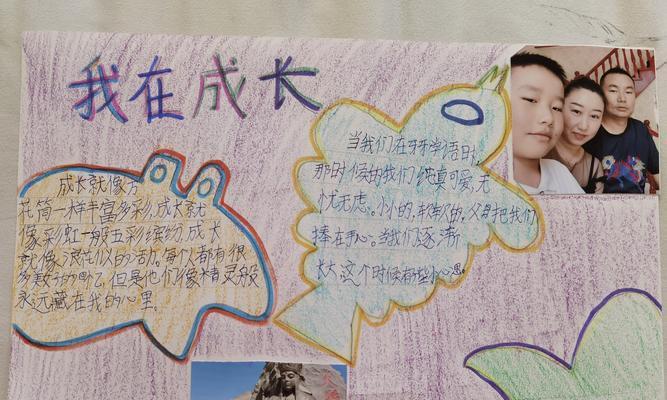 我在成长
成长就像万
花筒一样丰富多彩,成长就
像彩虹一般五彩缤纷,成长
就像浪花似的活动。每个都有很
多数不的回忆,但是他们像精灵般
永远藏在我的心里。
当我们在牙牙学语时,
那时候的我们纯真可爱,无
忧无虑。小小的,软软的,父母把我们
捧在手心。当我们逐渐
长大,这个时候有些小心思。